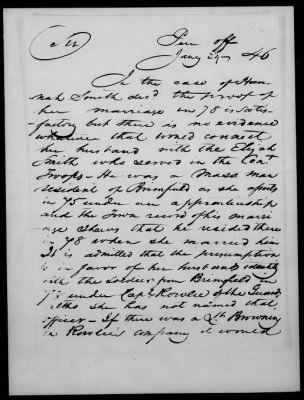 Pen off
Jany 29 46
In the case of Han-
nah Smith decd the proof of
her marriage in 78 is satis-
factory but there is no evidence
that would connect
her husband with the Elijah
Smith who served in the Cont
Troops - He was a Mass man
resident of Brimfield as she asserts
in 75 under an apprenticeship
and the Town record of his marri-
age shews that he resided there
in 78 when she married him
It is admitted that the presumption
is in favor of her husbands identity
with the Soldier from Brimfield in
under Capt Rowlee &
she has not named that
officer - If there was a Lt Browning
in Rowlee's company it would